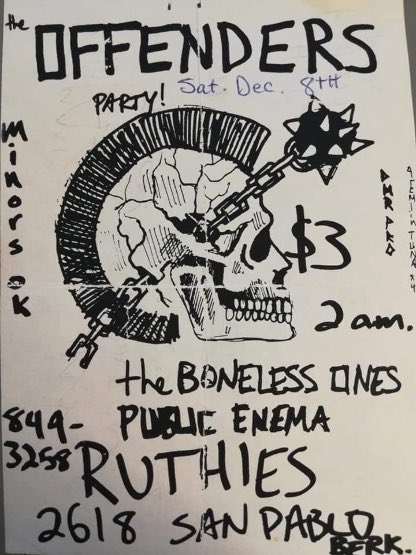 the
OFFENDERS
Sat. Dec. 8TH
PARTY!
minors OK
$3
2 am.
the BONELESS ONES
PUBLIC ENEMA
849-
3258
RUTHIES
2618 SAN PABLO
BERK.